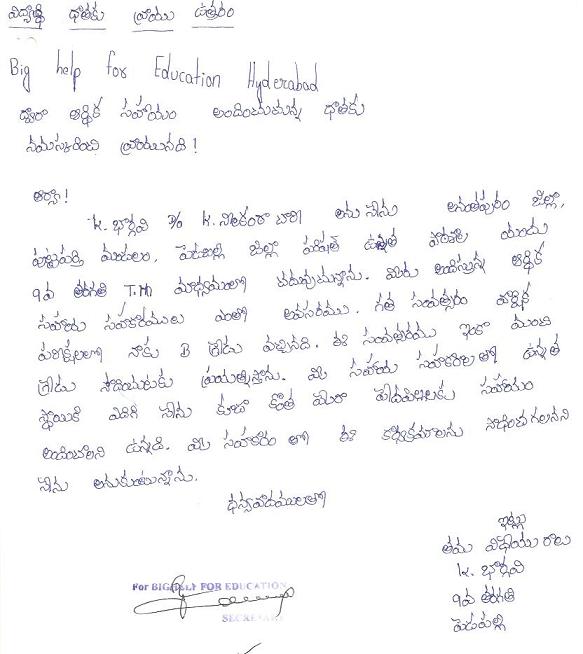 విద్యార్థి దాతకు వ్రాయు ఉత్తరం
Big help for Education Hyderabad
ద్వారా ఆర్థిక సహాయం అందించుచున్న దాతకు
నమస్కరించి వ్రాయునది!
ఆర్యా!
K. భార్గవి D/o K. బారి అను నేను అనంతపురం జిల్లా,
పుట్టపర్తి మండలం, పెడపల్లి జిల్లా పరిషత్ ఉన్నత పాఠశాల యందు
9వ తరగతి T.M మాధ్యమంలో చదువుచున్నాను. మీరు అందిస్తున్న ఆర్థిక
సహాయ సహకారములు ఎంతో అవసరము. గత సంవత్సరం వార్షిక
పరీక్షలలో నాకు B గ్రేడు వచ్చినది. ఈ సంవత్సరము ఇంకా మంచి
గ్రేడు సాధించుటకు ప్రయత్నిస్తాను. మీ సహాయ సహకారాలతో ఉన్నత
స్థాయికి ఎదిగి నేను కూడా కొంత మేరా పేదపిల్లలకు సహాయం
అందించాలని ఉన్నది. మీ సహకారం తో ఈ కార్యక్రమాలను సాధించగలనని
నేను అనుకుంటున్నాను.
ధన్యవాదములతో
ఇట్లు
తమ విధేయురాలు
K. భార్గవి
9వ తరగతి
పెడపల్లి
For BIG HELP FOR EDUCATION
SECRETARY